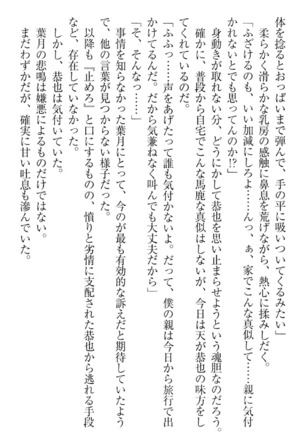 体を捻るとおっぱいまで弾んで、手の平に吸いついてくるみたいだ。
柔らかく滑らかな乳房の感触に鼻息を荒げながら、熱心に揉みしだく。
「ふざけるのも、いい加減にしろよ……んっ、ぁ、家でこんな真似して……親に気付
かれないとでも思ってんのか!?」
身動きが取れない分、どうにかして恭也を思い止まらせようという魂胆なのだろう。
確かに、普段から自宅でこんな馬鹿な真似はしないが、今日は天が恭也の味方をし
てくれているのだ。
「ふふっ……声をあげたって誰も気付かないよ。だって、僕の親は今日から旅行で出
かけてるんだ。だから気兼ねなく叫んでも大丈夫だから」
「そ、そんなっ……」
事情を知らなかった葉月にとって、今のが最も有効的な訴えだと期待していたよう
で、他の言葉が見つからない様子だった。
以降も「止めろ」と口にするものの、憤りと劣情に支配された恭也から逃れる手段
など、存在していなかった。
しかし、恭也は気付いていた。
葉月の悲鳴は嫌悪によるものだけではない。
まだわずかだが、確実に甘い吐息も滲んでいた。